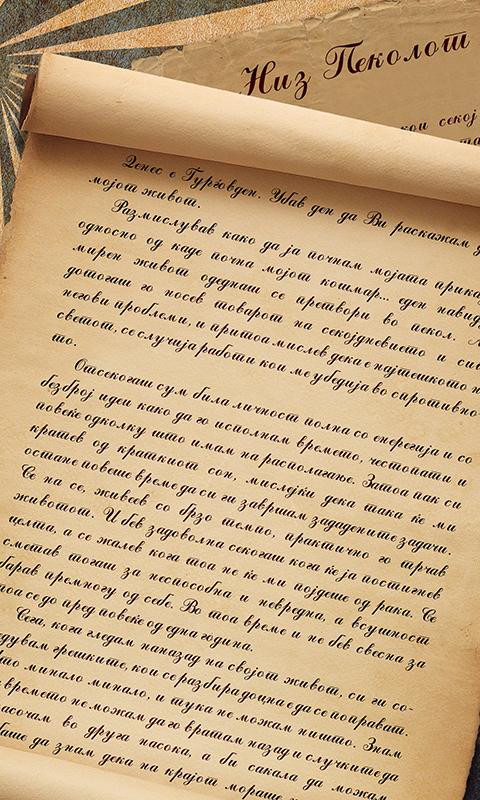 Низ Пеколот
кои секој
Денес е Ѓурѓовден. Убав ден да Ви раскажам
мојот живот.
Размислував како да ја почнам мојата
односно од каде почна мојот кошмар... еден
мирен живот одеднаш се претвори во пекол.
дотогаш го носев товарот на секојдневието и
негови проблеми, и притоа мислев дека е најтешкото
светот, се случија работи кои ме убедија во спротивно-
то.
Отсекогаш сум била личност полна со енергија и со
безброј идеи како да го исполнам времето, честопати и
повеќе одколку што имам на располагање. Затоа пак си
кратев од краткиот сон, мислејќи дека така ќе ми
остане повеше време да си ги завршам зададените задачи.
Се на се, живеев со брзо темпо, практично го трчав
животот. И бев задоволна секогаш кога ќе ја постигнев
целта, а се жалев кога тоа не ќе ми појдеше од рака. Се
сметав тогаш за неспособна и невредна, а всушност
барав премногу од себе. Во тоа време и не бев свесна за
тоа се до пред повеќе од една година.
Сега, кога гледам наназад на својот живот, си ги со-
гледувам грешките, кои се разбира доцна е да се поправат.
што минало минало, и тука не можам ништо. Знам
времето не можам да го вратам назад и случките да
насочам во друга насока, а би сакала да можам
да знам дека на крајот мораше